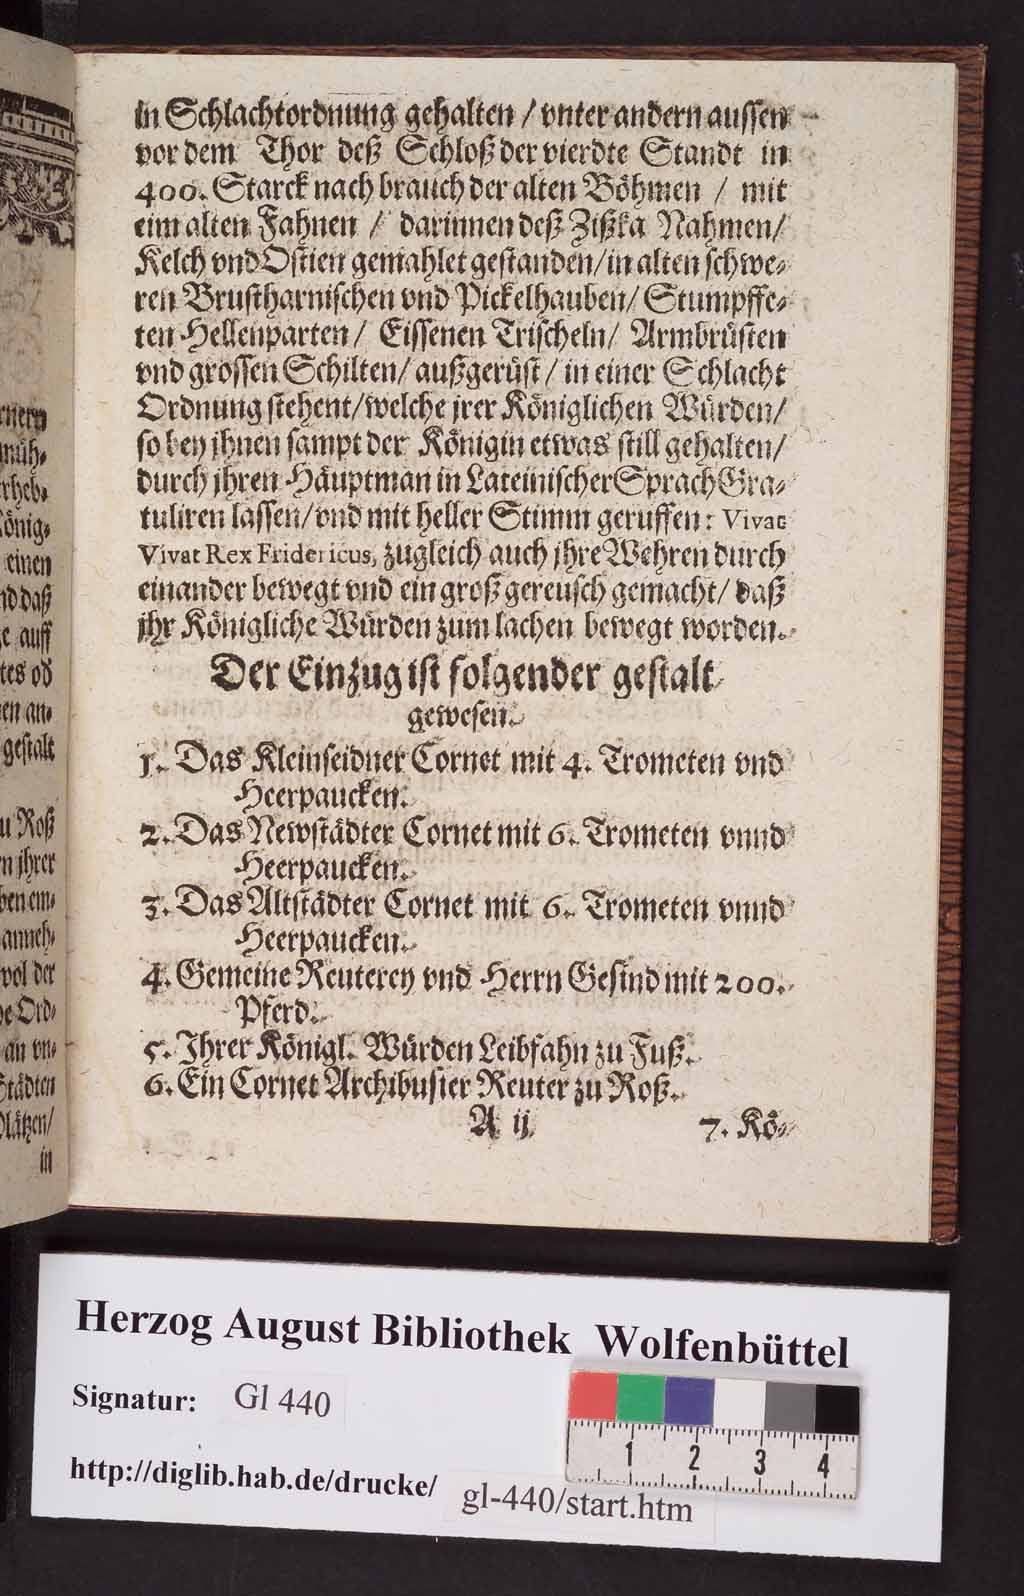 in Schlachtordnung gehalten / vnter andern aussen
vor dem Thor deß Schloß der vierdte Standt in
400. Starck nach brauch der alten Böhmen / mit
eim alten Fahnen / darinnen deß Zißka Nahmen/
Kelch vnd Ostien gemahlet gestanden/in alten schwe-
ren Brustharnischen vnd Pickelhauben/ Stumpffe-
ten Hellenparten/ Eissenen Trischeln/ Armbrüsten
vnd grossen Schilten/ außgerüst/ in einer Schlacht
Ordnung stehent/welche jrer Königlichen Würden/
so bey jhnen sampt der Königin etwas still gehalten/
durch jhren Häuptman in Lateinischer Sprach Gra-
tuliren lassen/vnd mit heller Stimm geruffen: Vivat
Vivat Rex Fridericus, zugleich auch jhre Wehren durch
einander bewegt vnd ein groß gereusch gemacht/ daß
jhr Königliche Würden zum lachen bewegt worden.
Der Einzug ist folgender gestalt
gewesen.
1. Das Kleinseidner Cornet mit 4. Trometen vnd
Heerpaucken.
2. Das Newstädter Cornet mit 6. Trometen vnnd
Heerpaucken.
3. Das Altstädter Cornet mit 6. Trometen vnnd
Heerpaucken.
4. Gemeine Reuterey vnd Herrn Gesind mit 200.
Pferd.
5. Ihrer Königl. Würden Leibfahn zu Fuß.
6. Ein Cornet Archibusier Reuter zu Roß.
A ij
7. Kö-
müh-
rheb-
önig-
einen
nd daß
e auff
tes ob
en an-
gestalt
u Roß
n jhrer
ben em-
anneh-
wol der
e Ord-
an vn-
Städten
Plätzen/
in
Herzog August Bibliothek Wolfenbüttel
Signatur: Gl 440
http://diglib.hab.de/drucke/ gl-440/start.htm
1 2 3 4